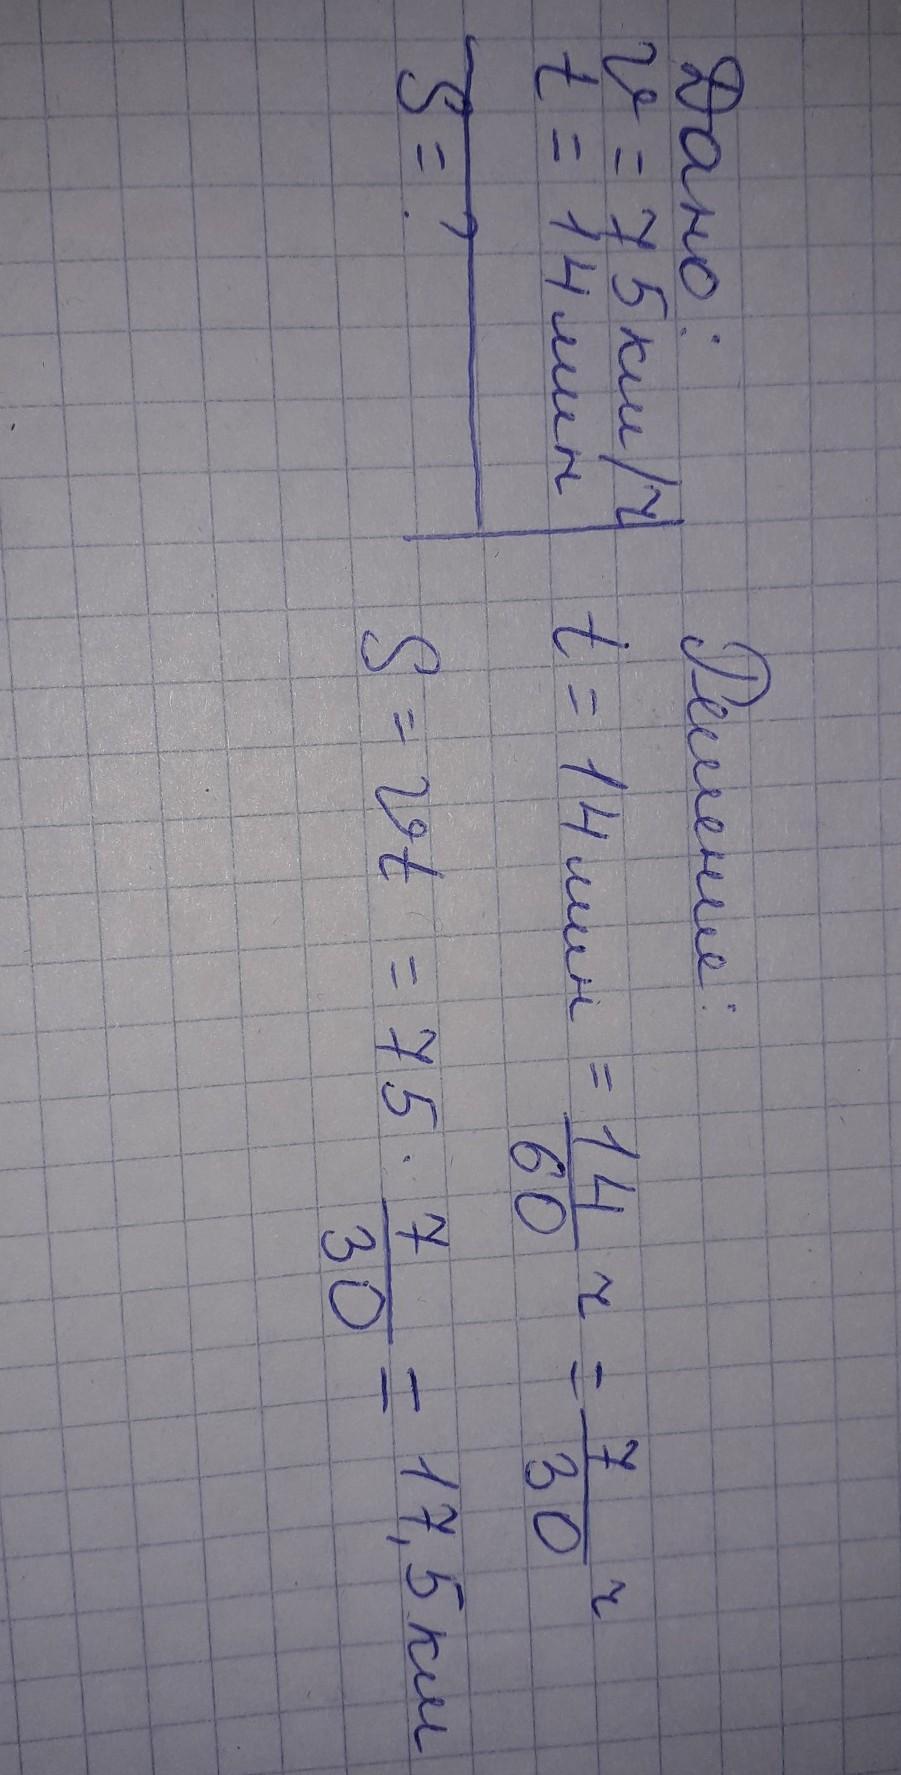 Дано:
v = 75км/ч
t = 14мин
S = ?
Решение:
t = 14мин = 14/60 ч = 7/30 ч
S = vt = 75 · 7/30 = 17,5км